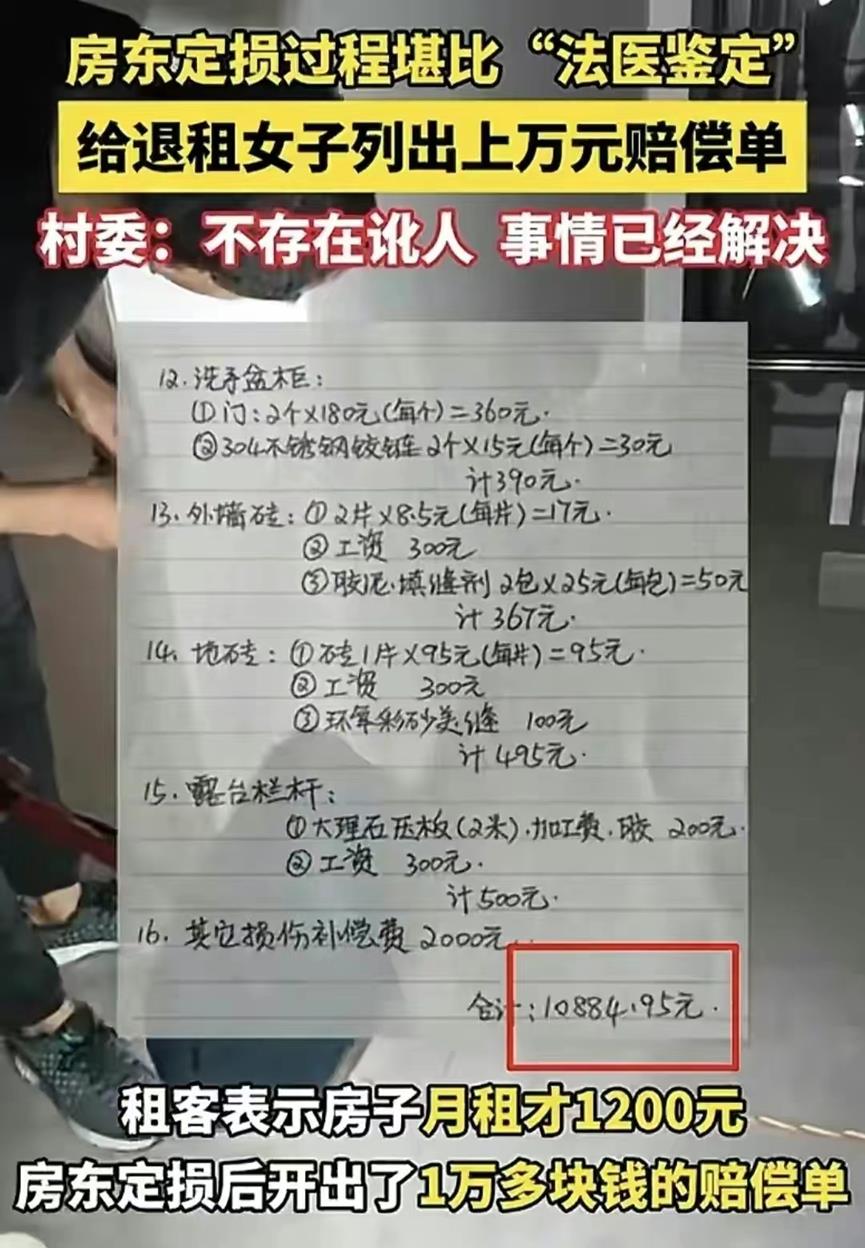 房东定损过程堪比“法医鉴定”
给退租女子列出上万元赔偿单
村委：不存在讹人 事情已经解决
12.洗手盆柜：
①门：2个×180元(每个)=360元.
②304不锈钢铰链2个×15元(每个)=30元
计390元.
13.外墙砖：①2片×8.5元(每片)=17元.
②工资 300元
③胶泥.填缝剂2包×25元(每包)=50元
计367元.
14.地砖：①砖1片×95元(每片)=95元.
②工资 300元
③环氧彩砂美缝 100元
计495元.
15.露台栏杆：
①大理石压板(2米).加工费.胶 200元.
②工资 300元.
计500元.
16.其它损伤补偿费2000元.
合计：10884.95元.
租客表示房子月租才1200元
房东定损后开出了1万多块钱的赔偿单